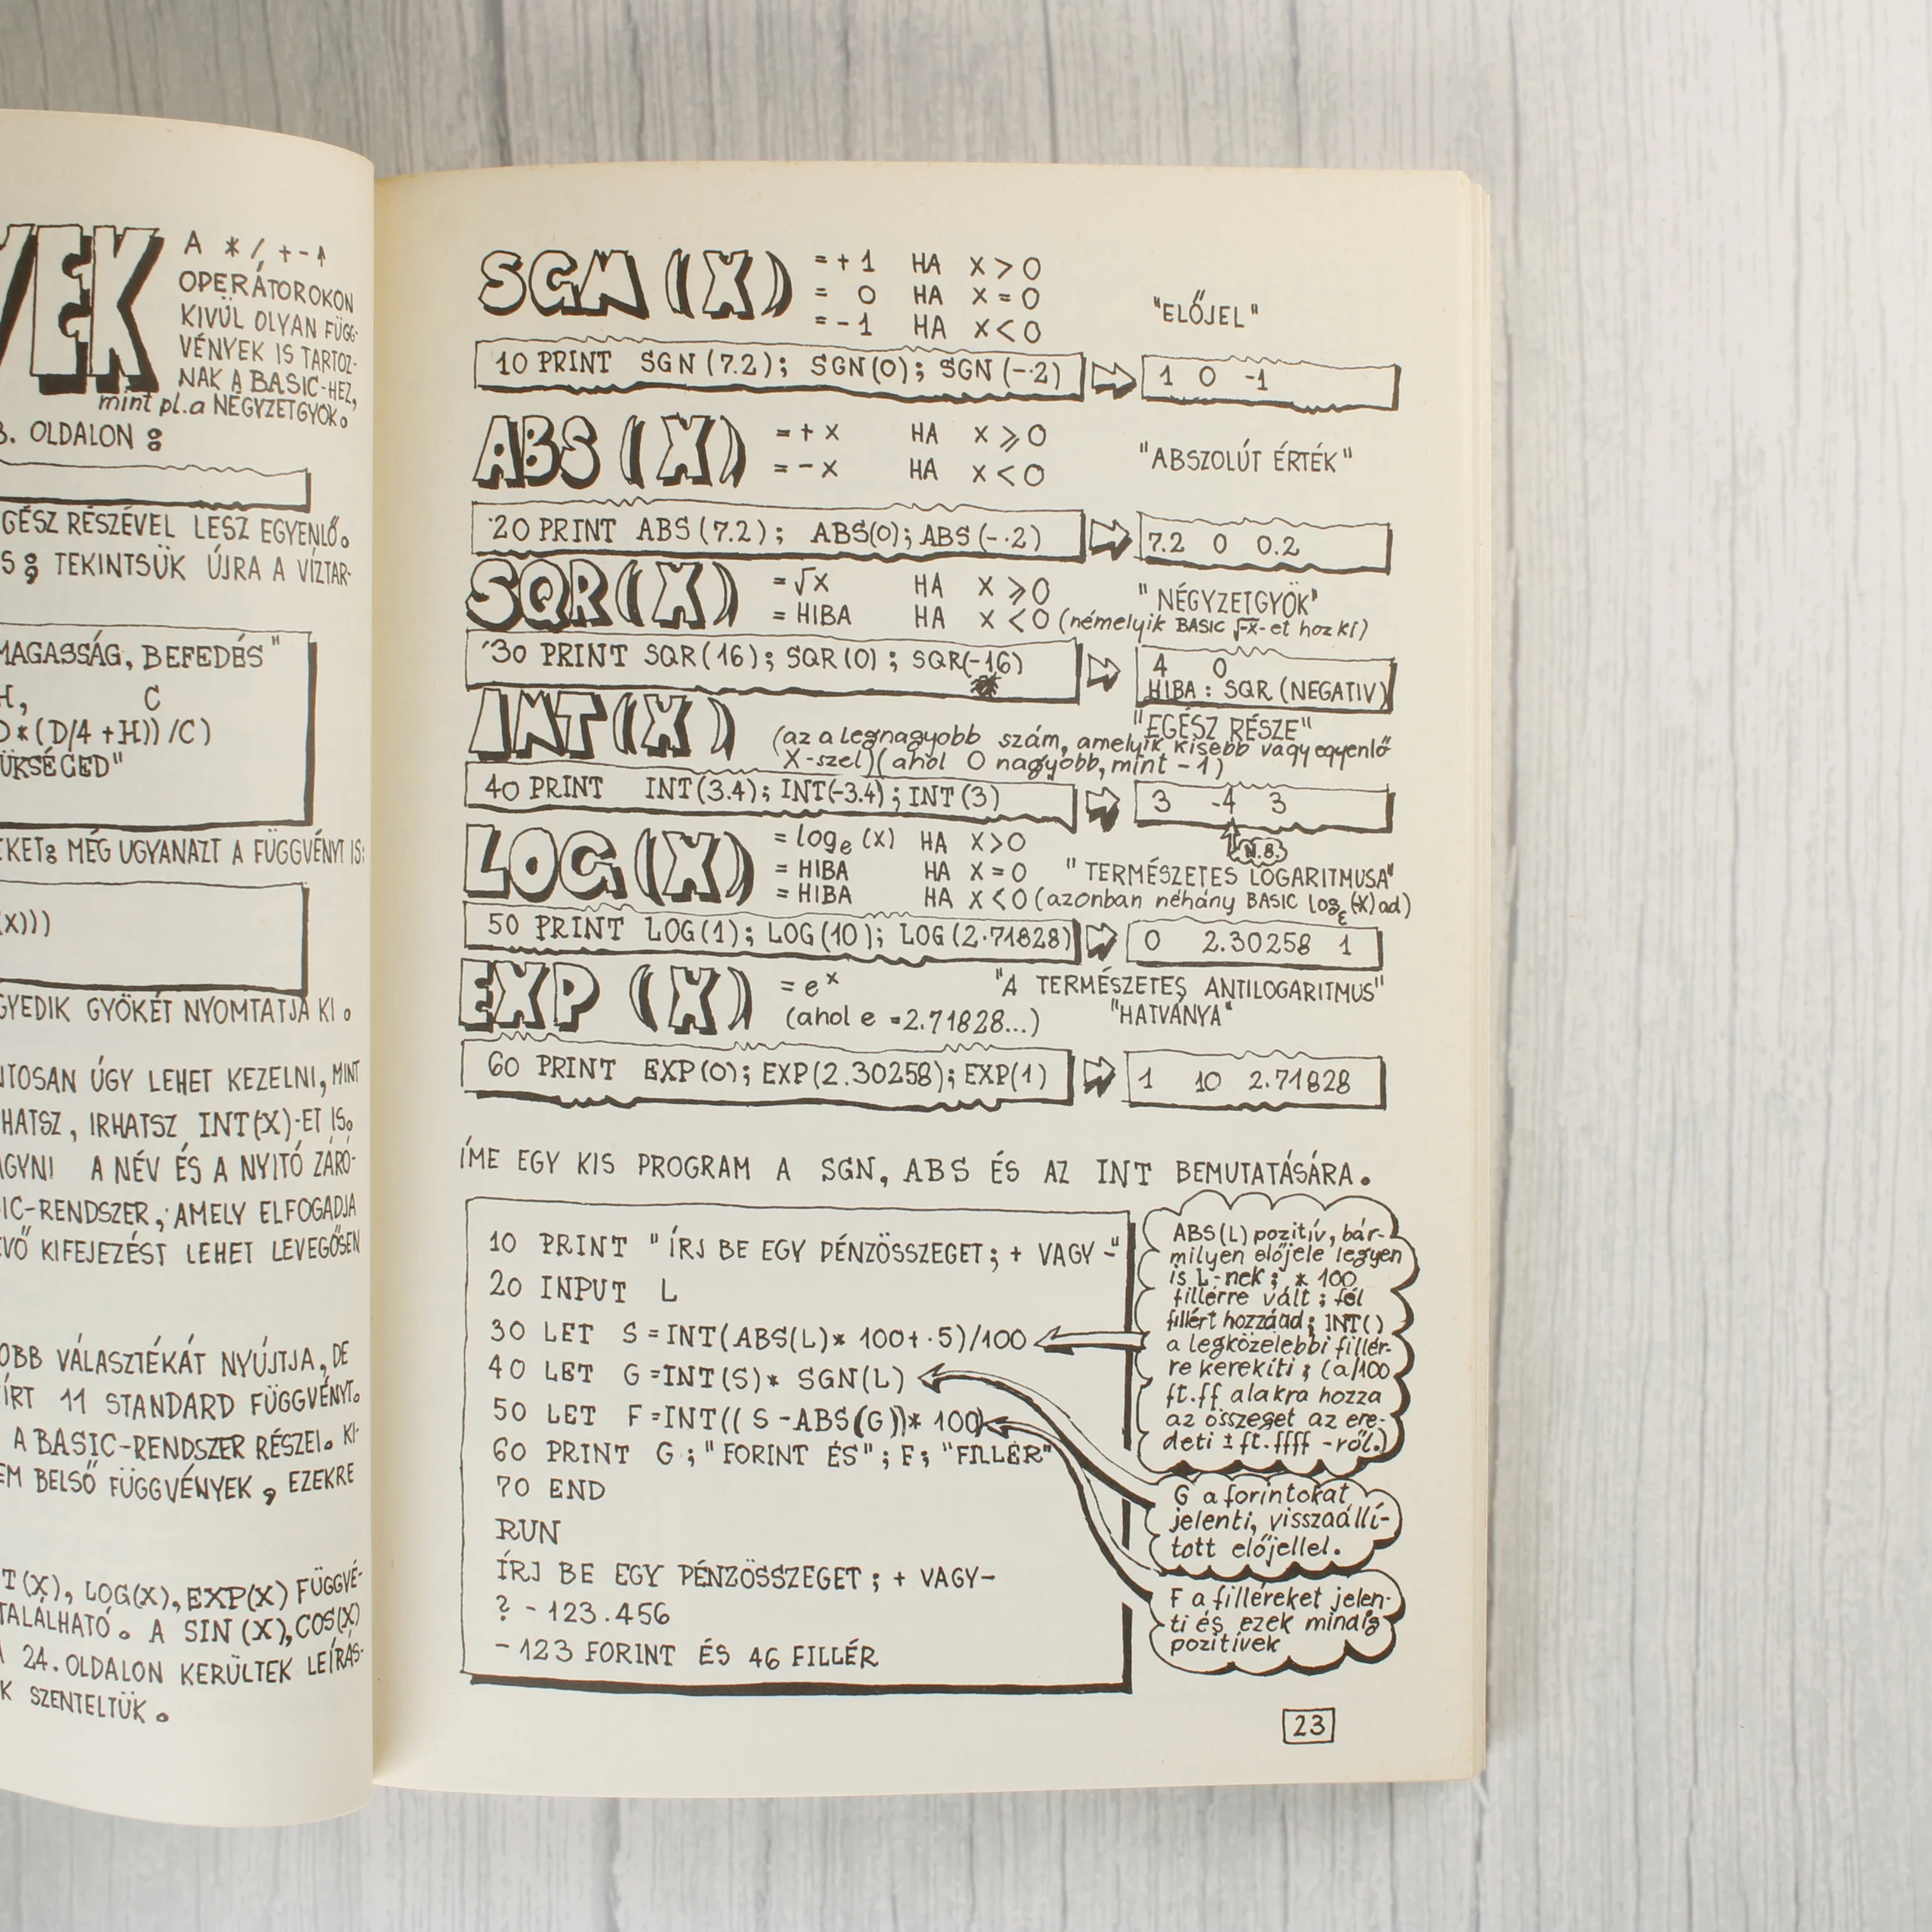 YEK
A * / + - ↑
OPERÁTOROKON
KIVÜL OLYAN FÜGG-
VÉNYEK IS TARTOZ-
NAK A BASIC-HEZ,
mint pl. a NÉGYZETGYÖK.
OLDALON :
GÉSZ RÉSZÉVEL LESZ EGYENLŐ.
S ; TEKINTSÜK ÚJRA A VÍZTAR-
MAGASSÁG, BEFEDÉS"
H, C
D*(D/4 +H))/C)
ÜKSÉGED"
EKET; MÉG UGYANAZT A FÜGGVÉNYT IS:
(X)))
GYEDIK GYÖKÉT NYOMTATJA KI.
NTOSAN ÚGY LEHET KEZELNI, MINT
HATSZ, IRHATSZ INT(X)-ET IS.
AGYNI A NÉV ÉS A NYITÓ ZÁRÓ-
IC-RENDSZER, AMELY ELFOGADJA
EVŐ KIFEJEZÉST LEHET LEVEGŐSEN
OBB VÁLASZTÉKÁT NYÚJTJA, DE
ÍRT 11 STANDARD FÜGGVÉNYT.
A BASIC-RENDSZER RÉSZEI. KI-
EM BELSŐ FÜGGVÉNYEK, EZEKRE
T(X), LOG(X), EXP(X) FÜGGVÉ-
TALÁLHATÓ. A SIN(X), COS(X)
A 24. OLDALON KERÜLTEK LEÍRÁS-
K SZENTELTÜK.
SGN (X) = +1 HA X > 0
= 0 HA X = 0
= -1 HA X < 0
"ELŐJEL"
10 PRINT SGN (7.2); SGN(0); SGN (-.2)
1 0 -1
ABS (X) = + X HA X ⩾ 0
= - X HA X < 0
"ABSZOLÚT ÉRTÉK"
20 PRINT ABS (7.2); ABS(0); ABS (-.2)
7.2 0 0.2
SQR(X) = √X HA X ⩾ 0
"NÉGYZETGYÖK"
= HIBA HA X < 0 (némelyik BASIC √-X-et hoz ki)
30 PRINT SQR(16); SQR(0); SQR(-16)
4 0
HIBA : SQR (NEGATIV)
INT(X)
"EGÉSZ RÉSZE"
(az a legnagyobb szám, amelyik kisebb vagy egyenlő
X-szel)(ahol 0 nagyobb, mint -1)
40 PRINT INT(3.4); INT(-3.4); INT(3)
3 -4 3
N.B.
LOG(X) = logₑ (X) HA X>0
= HIBA HA X = 0
"TERMÉSZETES LOGARITMUSA"
= HIBA HA X < 0 (azonban néhány BASIC logₑ(-X) ad)
50 PRINT LOG(1); LOG(10); LOG(2.71828)
0 2.30258 1
EXP (X) = eˣ
"A TERMÉSZETES ANTILOGARITMUS"
(ahol e = 2.71828...)
"HATVÁNYA"
60 PRINT EXP(0); EXP(2.30258); EXP(1)
1 10 2.71828
ÍME EGY KIS PROGRAM A SGN, ABS ÉS AZ INT BEMUTATÁSÁRA.
10 PRINT "ÍRJ BE EGY PÉNZÖSSZEGET; + VAGY -"
20 INPUT L
30 LET S =INT(ABS(L)* 100+ .5)/100
40 LET G =INT(S)* SGN(L)
50 LET F =INT(( S -ABS(G))* 100)
60 PRINT G ; "FORINT ÉS" ; F; "FILLÉR"
70 END
RUN
ÍRJ BE EGY PÉNZÖSSZEGET ; + VAGY-
? - 123.456
- 123 FORINT ÉS 46 FILLÉR
ABS(L) pozitív, bár-
milyen előjele legyen
is L-nek ; * 100
fillérre vált ; fél
fillért hozzáad ; INT()
a legközelebbi fillér-
re kerekíti ; (a/100
ft.ff alakra hozza
az összeget az ere-
deti ± ft.ffff -ről.)
G a forintokat
jelenti, visszaállí-
tott előjellel.
F a filléreket jelen-
ti és ezek mindig
pozitívek
23